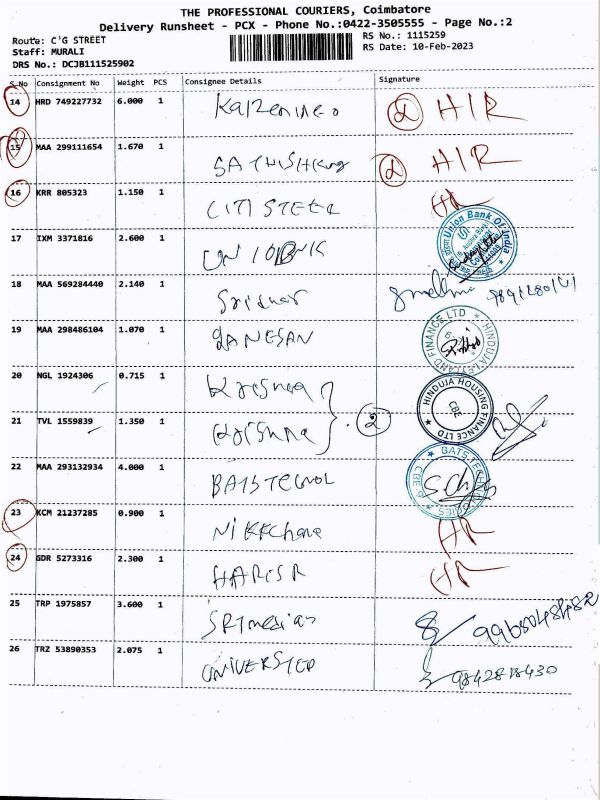 THE PROFESSIONAL COURIERS, Coimbatore
Delivery Runsheet - PCX - Phone No.:0422-3505555 - Page No.:2
Route: C'G STREET
Staff: MURALI
DRS No.: DCJB111525902
RS No.: 1115259
RS Date: 10-Feb-2023
S.No Consignment No Weight PCS Consignee Details Signature
14 HRD 749227732 6.000 1 2 HR
15 MAA 299111654 1.670 1 2 HR
16 KRR 805323 1.150 1 CITI STEEL HR
17 IXM 3371816 2.600 1 Union Bank Of India
18 MAA 569284440 2.140 1 Sridhar
19 MAA 298486104 1.070 1 GANESAN HINDUJA LEYLAND FINANCE LTD
20 NGL 1924306 0.715 1 Krishna
21 TVL 1559839 1.350 1 Krishna 2 HINDUJA HOUSING FINANCE LTD CBE
22 MAA 293132934 4.000 1 BATS TECNOL
23 KCM 21237285 0.900 1 HR
24 GDR 5273316 2.300 1 HR
25 TRP 1975857 3.600 1
26 TRZ 53890353 2.075 1 9842818430